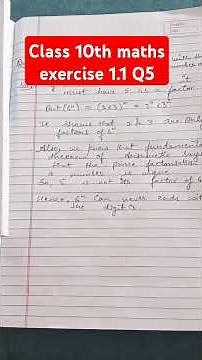 Class 10th maths
exercise 1.1 Q5
must have 5 as a factor
But (6ⁿ) = (2×3)ⁿ = 2ⁿ × 3ⁿ
It shows that 2 & 3 are only
factors of 6ⁿ
Also, we know that fundamental
theorem of Arithmetic says
that the prime factorisation
a number is unique
So, 5 is not the factor of 6ⁿ
Hence, 6ⁿ can never end with
digit 0